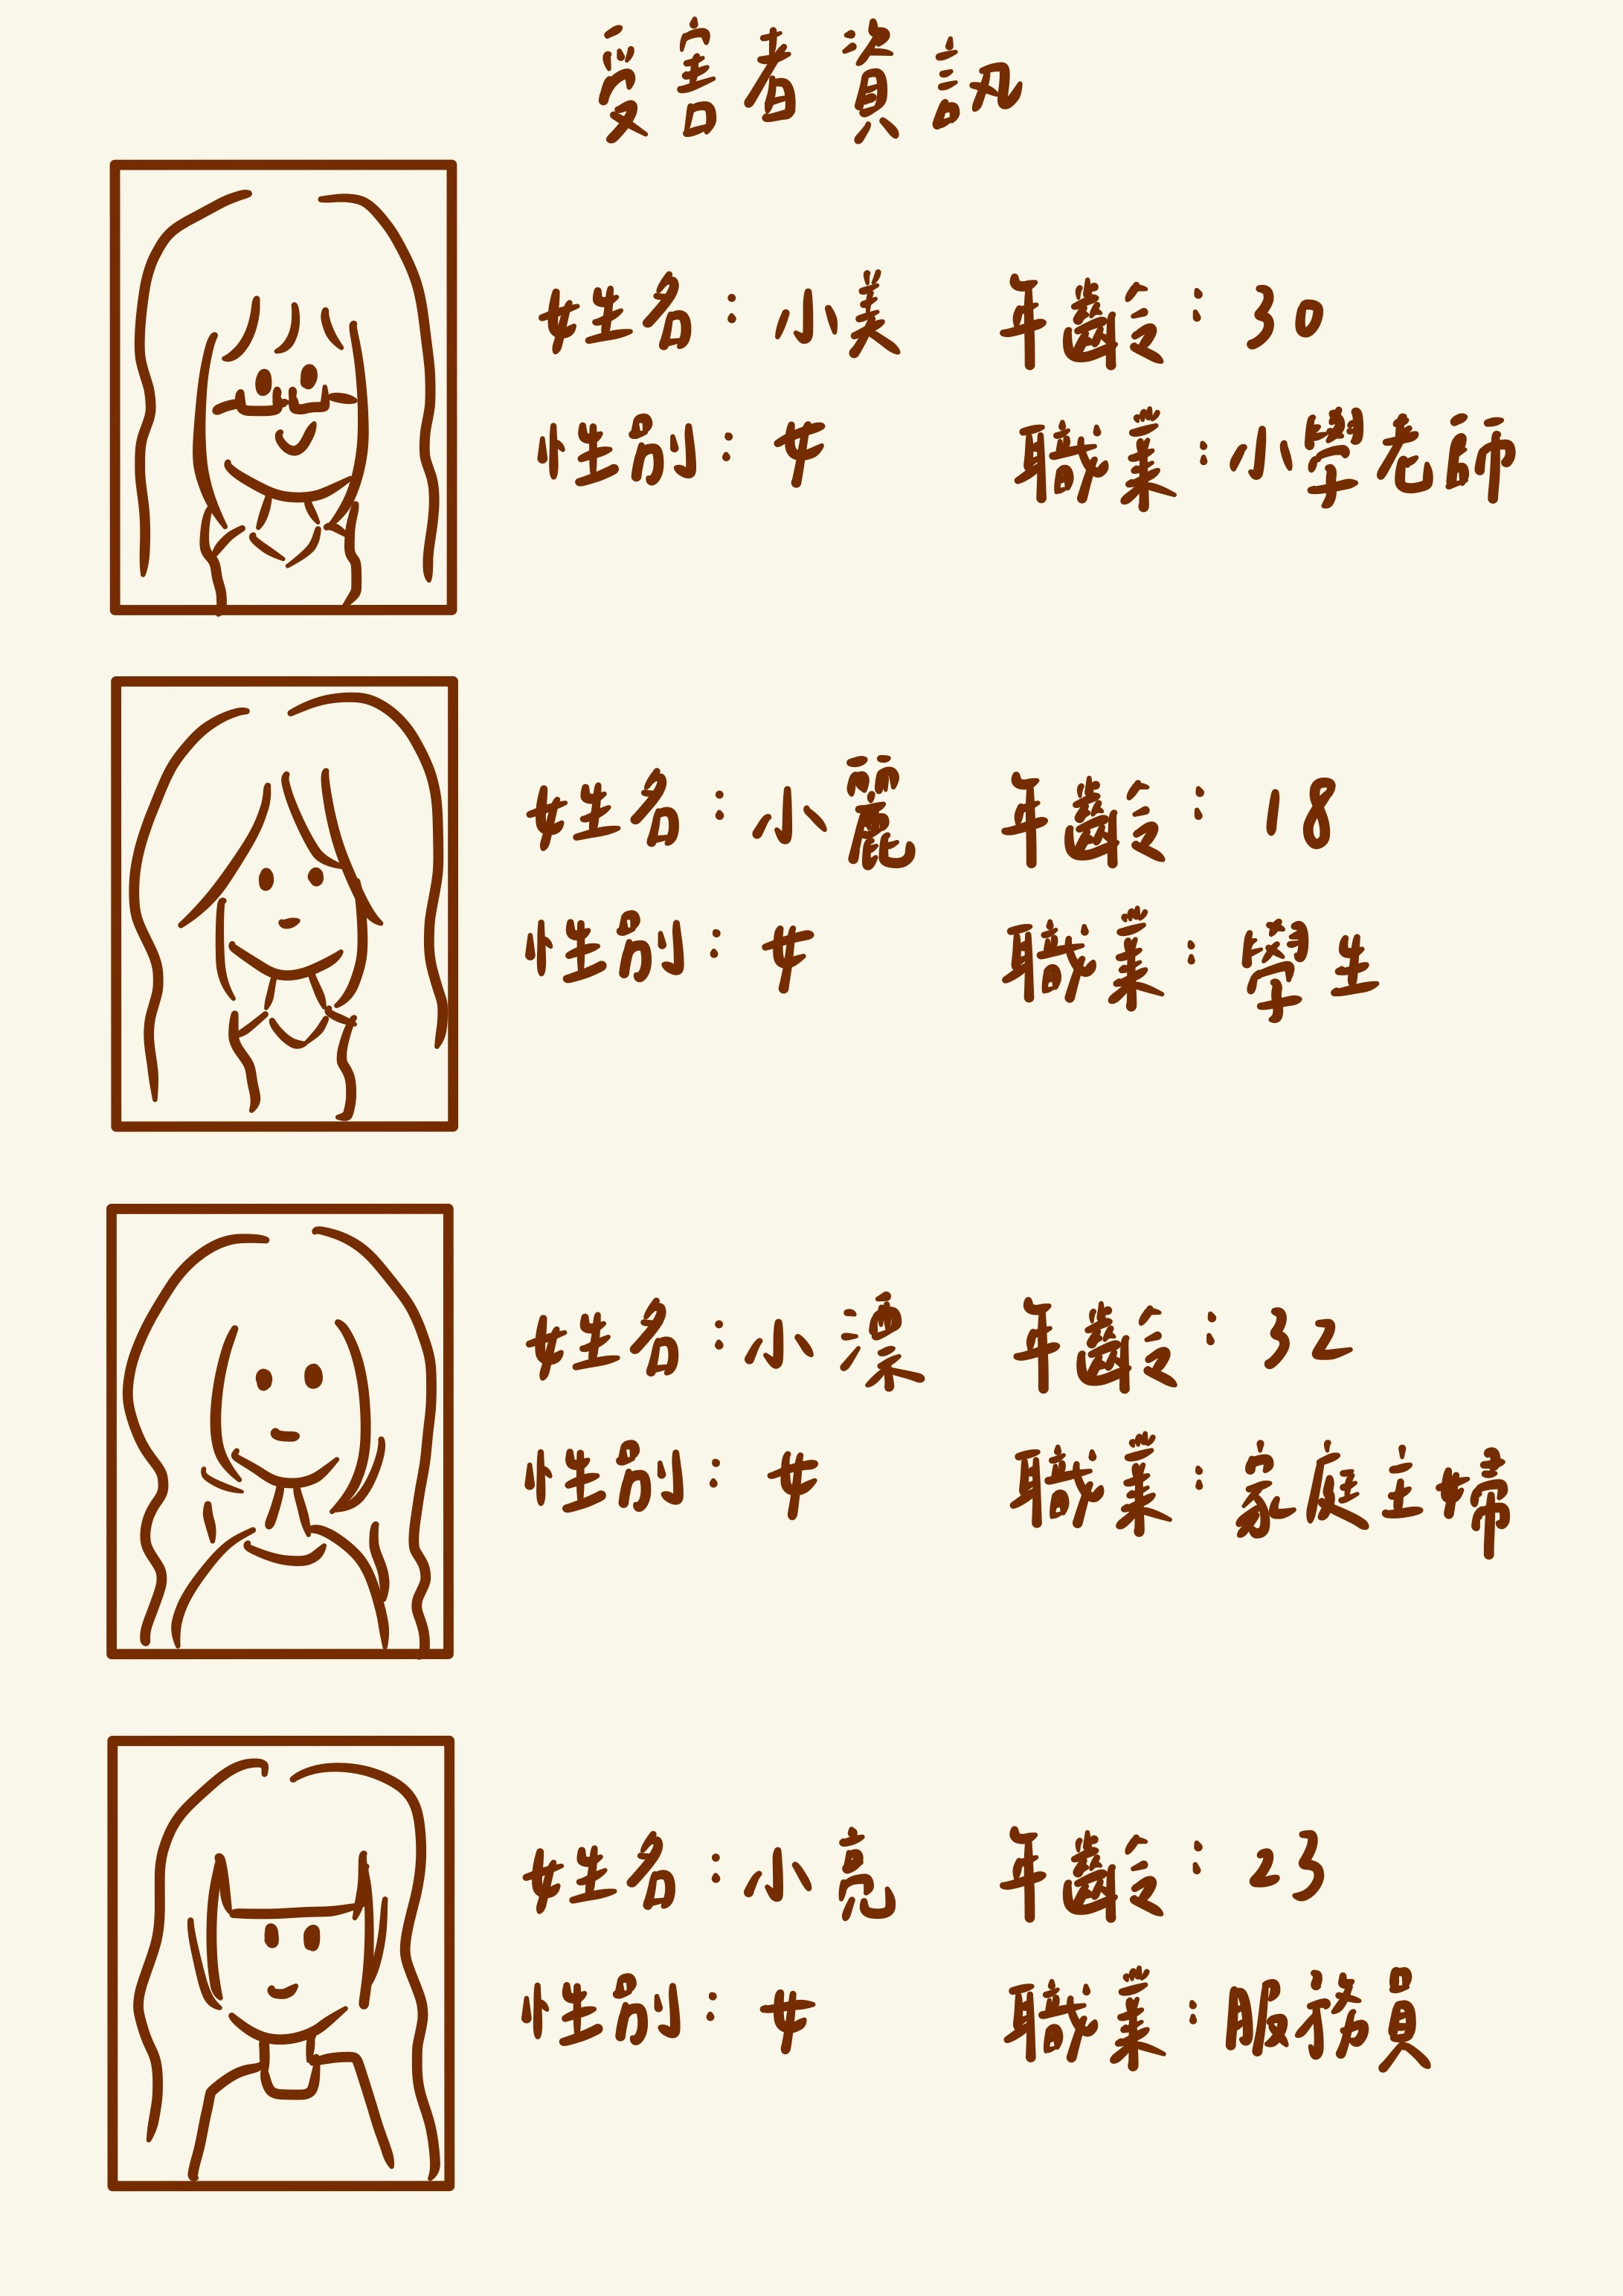 受害者資訊
姓名：小美 年齡：30
性別：女 職業：小學老師
姓名：小麗 年齡：18
性別：女 職業：學生
姓名：小漂 年齡：32
性別：女 職業：家庭主婦
姓名：小亮 年齡：23
性別：女 職業：服務員